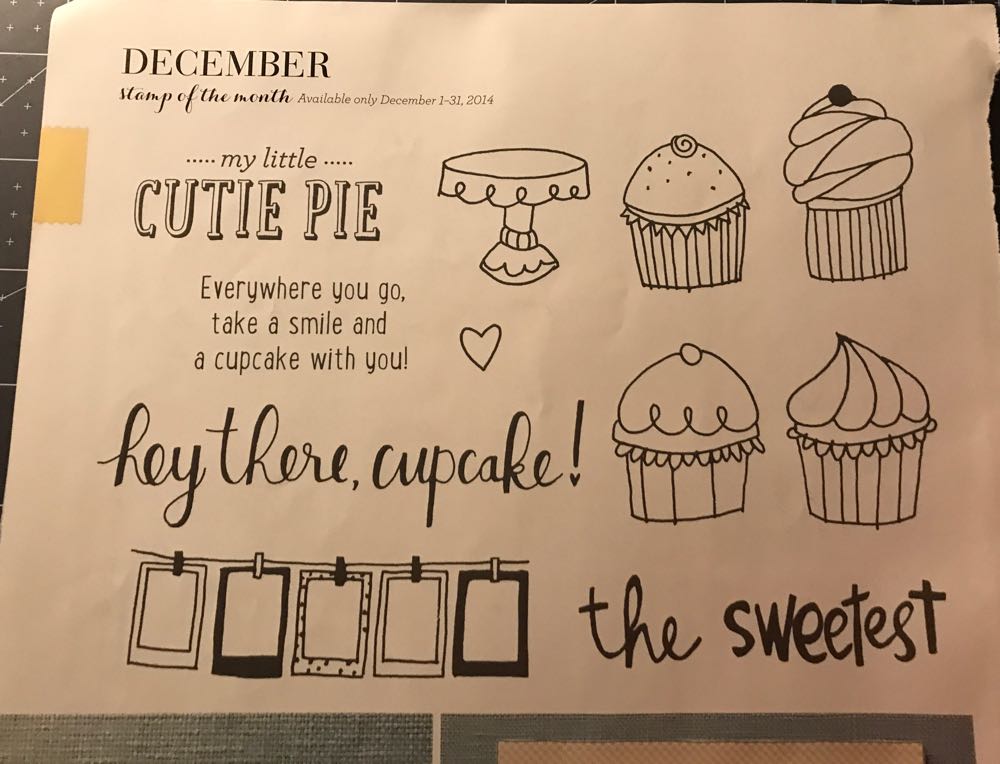 DECEMBER
stamp of the month Available only December 1–31, 2014
my little
CUTIE PIE
Everywhere you go,
take a smile and
a cupcake with you!
hey there, cupcake!
the sweetest